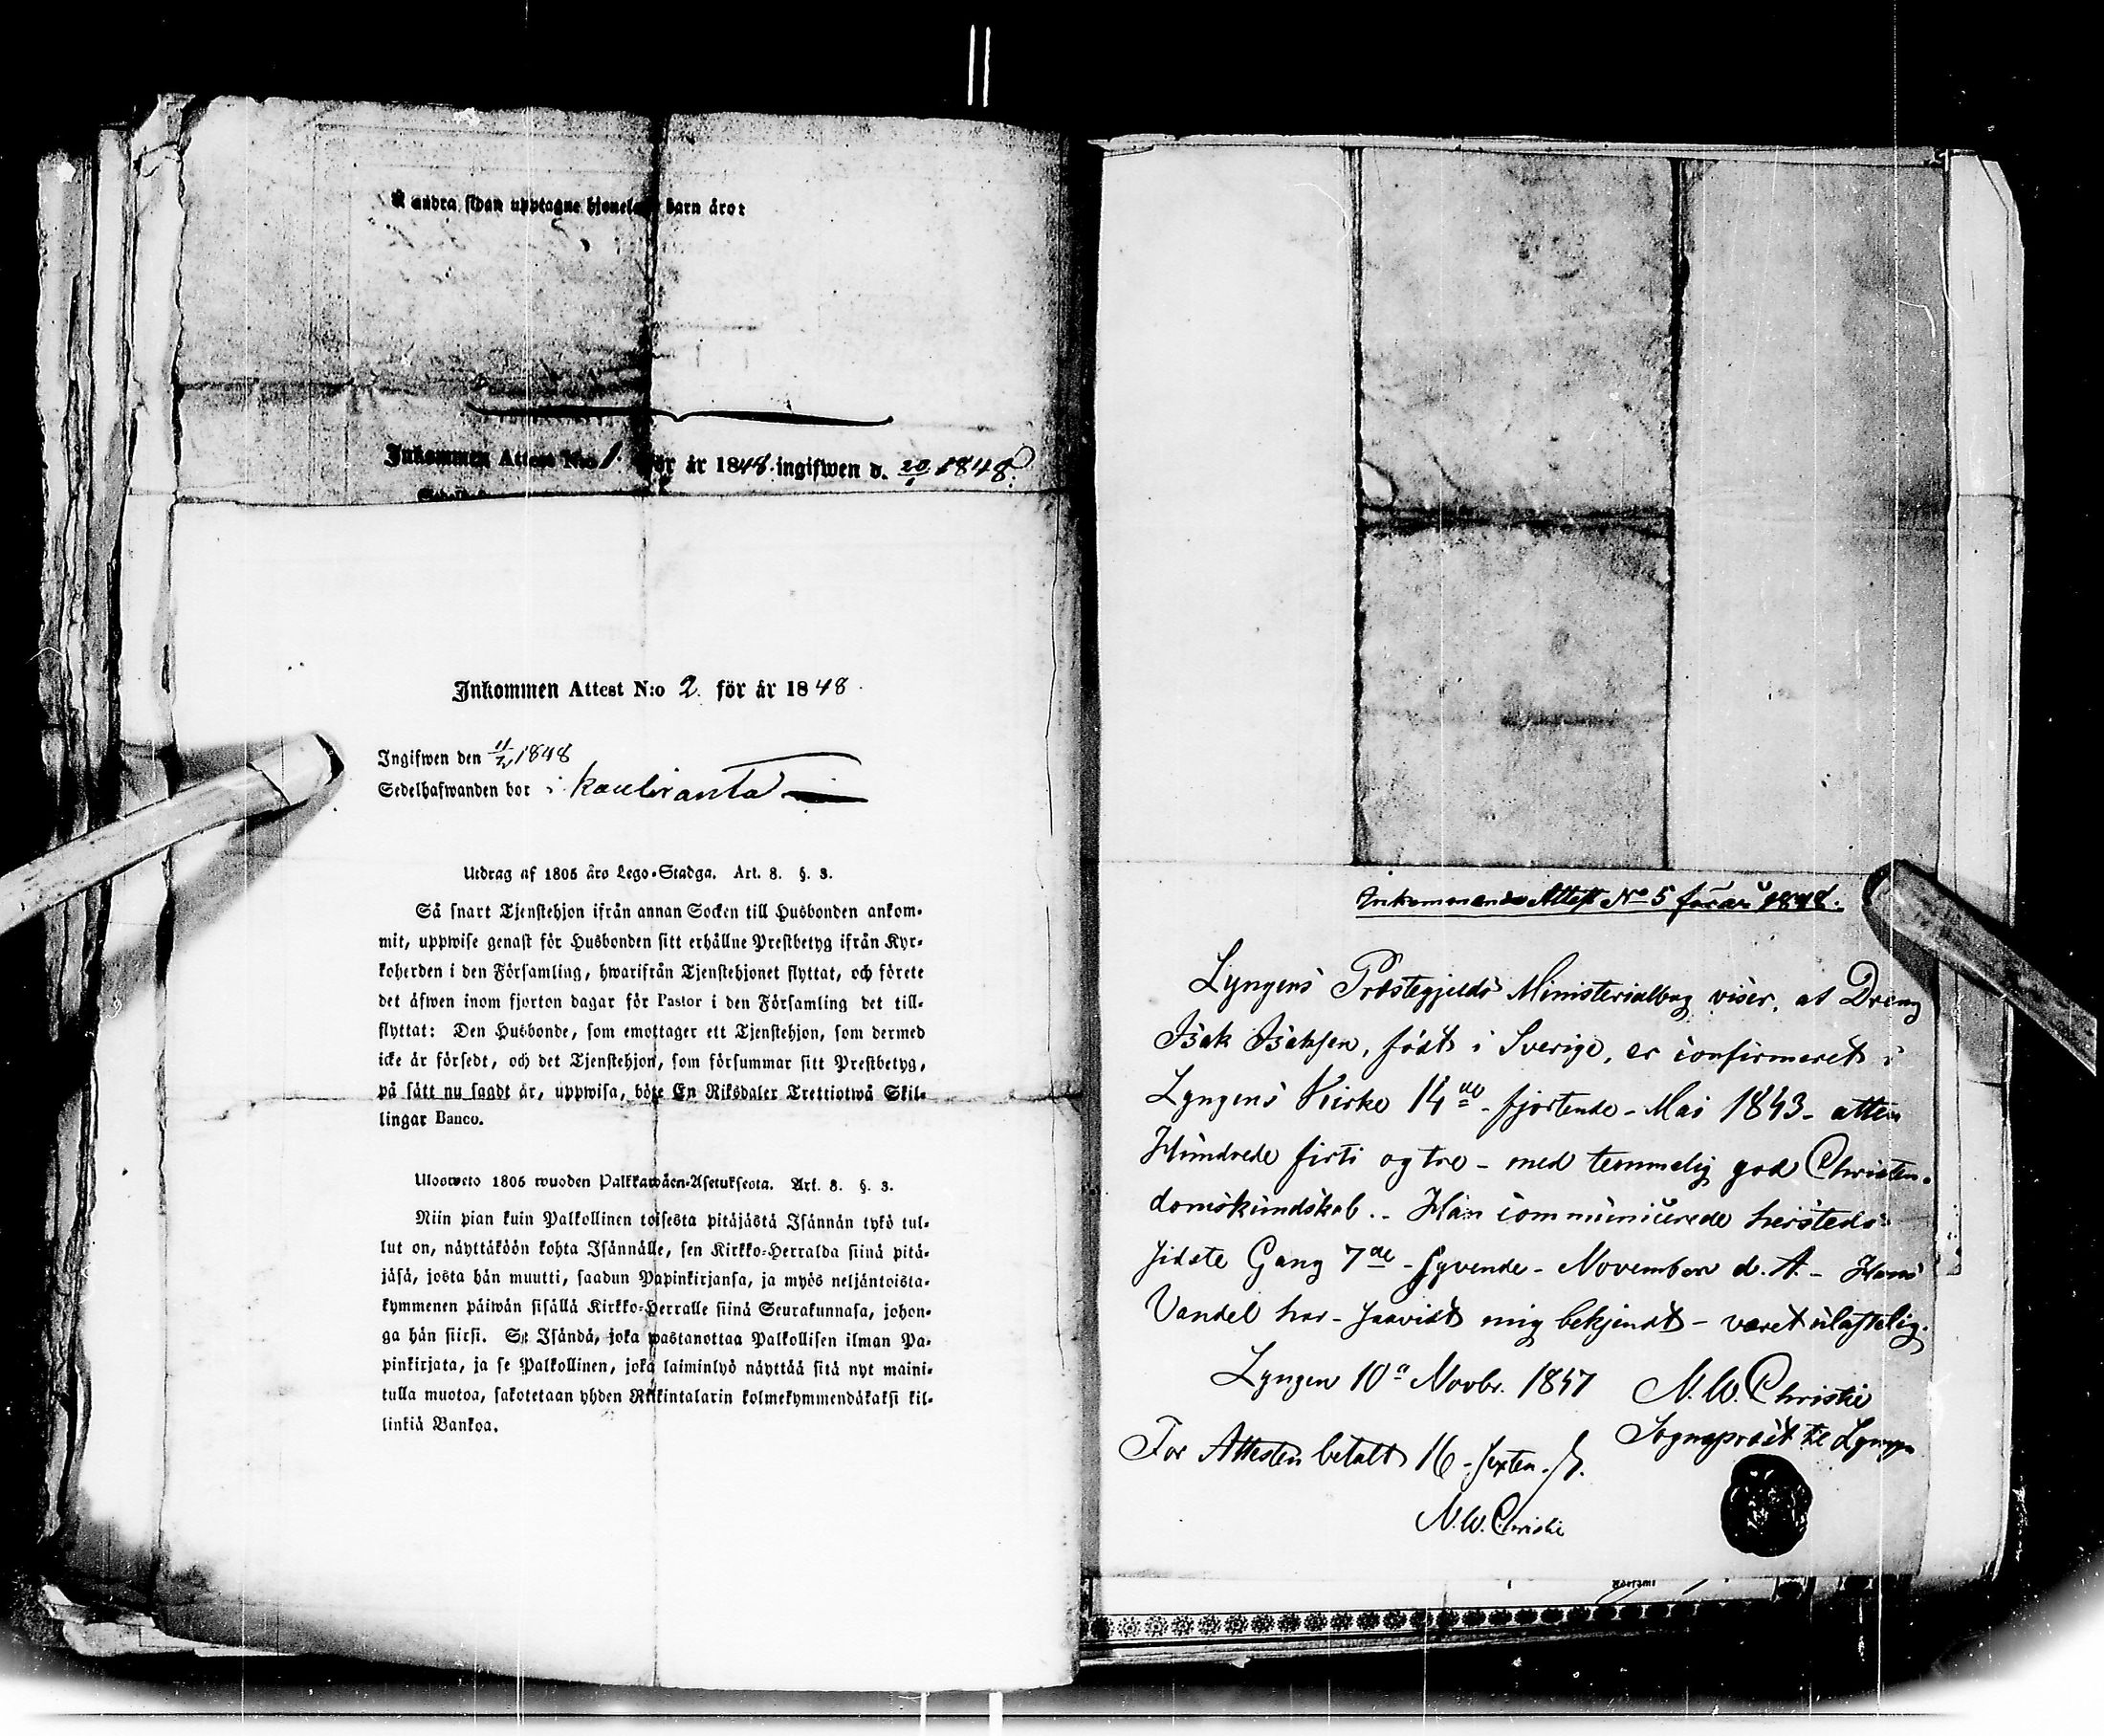 Å andra sidan upptagne hjonelags barn äro:
Inkommen Attest N:o 1. för år 1848. ingifwen d. 20/1 1848.
Inkommen Attest N:o 2. för år 1848.
Ingifwen den 11/2 1848
Sedelhafwanden bor i kauliranta
Utdrag af 1805 års Lego-Stadga. Art. 8. §. 3.
Så snart Tjenstehjon ifrån annan Socken till Husbonden ankom-
mit, uppwise genast för Husbonden sitt erhållne Prestbetyg ifrån Kyr-
koherden i den Församling, hwarifrån Tjenstehjonet flyttat, och förete
det äfwen inom fjorton dagar för Pastor i den Församling det till-
flyttat: Den Husbonde, som emottager ett Tjenstehjon, som dermed
icke är försedt, och det Tjenstehjon, som försummar sitt Prestbetyg,
på sätt nu sagdt är, uppwisa, böte En Riksdaler Trettiotwå Skil-
lingar Banco.
Ulosweto 1805 wuoden Palkkawäen-Asetuksesta. Art. 8. §. 3.
Niin pian kuin Palkollinen toisesta pitäjästä Isännän tykö tul-
lut on, näyttäköön kohta Isännälle, sen Kirkko-Herralda siinä pitä-
jäsä, josta hän muutti, saadun Papinkirjansa, ja myös neljäntoista-
kymmenen päiwän sisällä Kirkko-Herralle siinä Seurakunnasa, johon-
ga hän siirsi. Se Isändä, joka wastanottaa Palkollisen ilman Pa-
pinkirjata, ja se Palkollinen, joka laiminlyö näyttää sitä nyt maini-
tulla muotoa, sakotetaan yhden Riikintalarin kolmekymmendäkaksi kil-
linkiä Bankoa.
Inkommande Attest No 5 för år 1848.
Lyngens Præstegjelds Ministerialbog viser, at Dreng
Isak Isaksen, født i Sverige, er confirmeret i
Lyngens Kirke 14de - fjortende - Mai 1843 - atten
Hundrede firti og tre - med temmelig god Christen-
domskundskab. - Han communicerede hersteds
sidste Gang 7de - syvende - November d. A. - Hans
Vandel har - saavidt mig bekjendt - været ulastelig.
Lyngen 10d Novbr. 1847 N. W. Christie
Sognepræst til Lyngen
For Attesten betalt 16 - sexten - s.
N. W. Christie